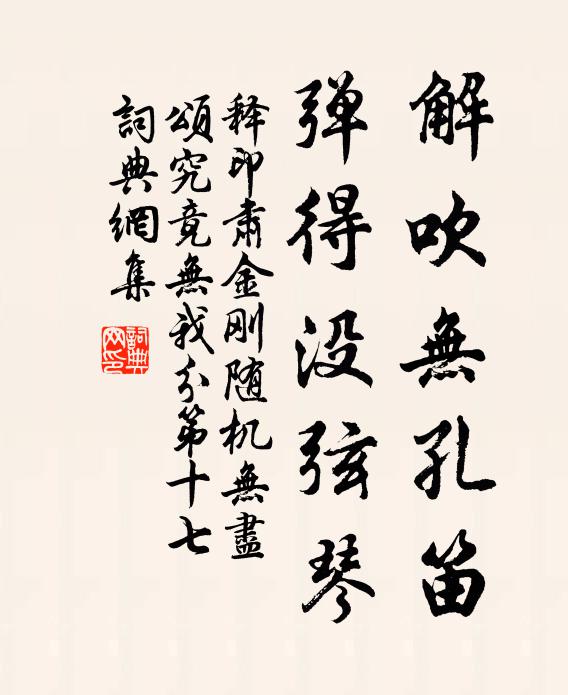 解吹無孔笛
弹得没弦琴
释印肃金刚随机無盡
頌究竟無我分第十七
詞典網集
詞典網印